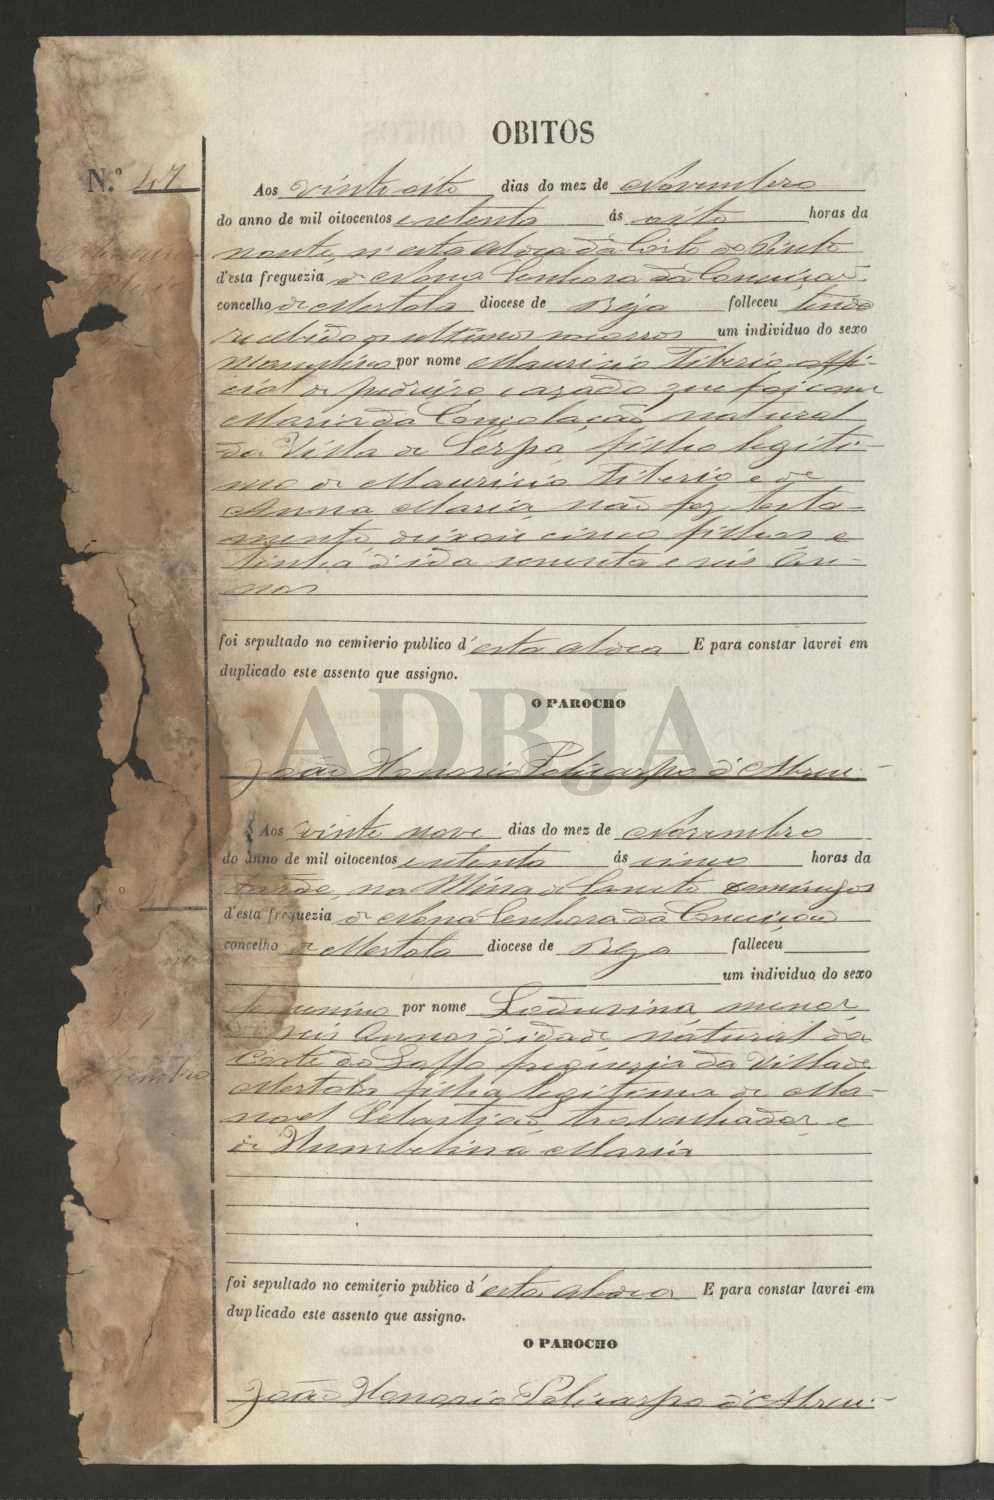 OBITOS
N.º 47
Aos vinte oito dias do mez de Novembro
do anno de mil oitocentos e setenta ás oito horas da
noute, n'esta aldea da Corte do Pinto
d'esta freguezia de Nossa Senhora da Conceição
concelho de Mertola diocese de Beja folleceu tendo
recebido os ultimos socorros um individuo do sexo
Masculino por nome Mauricio Tiberio offi-
cial de pedreiro cazado que foi com
Maria da Consolação natural
da Villa de Serpa, filho legiti-
mo de Mauricio Tiberio e de
Anna Maria não fez testa-
mento deixou cinco filhos e
tinha d'idade sessenta e seis An-
nos
foi sepultado no cemiterio publico d'esta aldea E para constar lavrei em
duplicado este assento que assigno.
O PAROCHO
João Honorio Policarpo d'Abreu
ADBJA
Aos vinte nove dias do mez de Novembro
do anno de mil oitocentos e setenta ás cinco horas da
tarde, na Mina de Domingos
d'esta freguezia de Nossa Senhora da Conceição
concelho de Mertola diocese de Beja falleceu
um individuo do sexo
femenino por nome menor
de seis Annos d'idade natural da
Corte do freguezia da Villa de
Mertola filha legitima de Ma-
noel Sebastião trabalhador e
de Humbelina Maria
foi sepultado no cemiterio publico d'esta aldea E para constar lavrei em
duplicado este assento que assigno.
O PAROCHO
João Honorio Policarpo d'Abreu